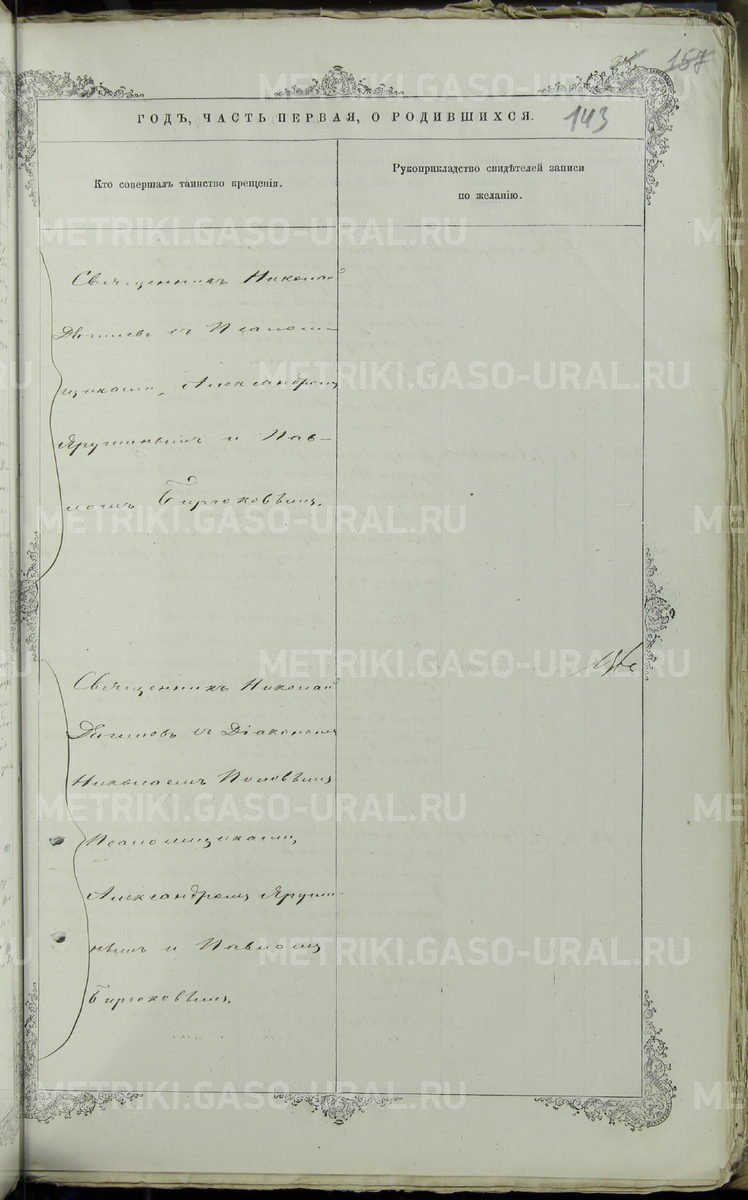 157
ГОДЪ, ЧАСТЬ ПЕРВАЯ, О РОДИВШИХСЯ.
143
Кто совершалъ таинство крещенія.
Рукоприкладство свидѣтелей записи
по желанію.
Священникъ Николай
съ Псаломи-
щиками, Александромъ
Ярушинымъ и Пав-
ломъ Бирюковымъ.
Священникъ Николай
съ Діакономъ
Николаемъ Поповымъ
Псаломщиками,
Александромъ Яруши-
нымъ и Павломъ
Бирюковымъ.
METRIKI.GASO-URAL.RU